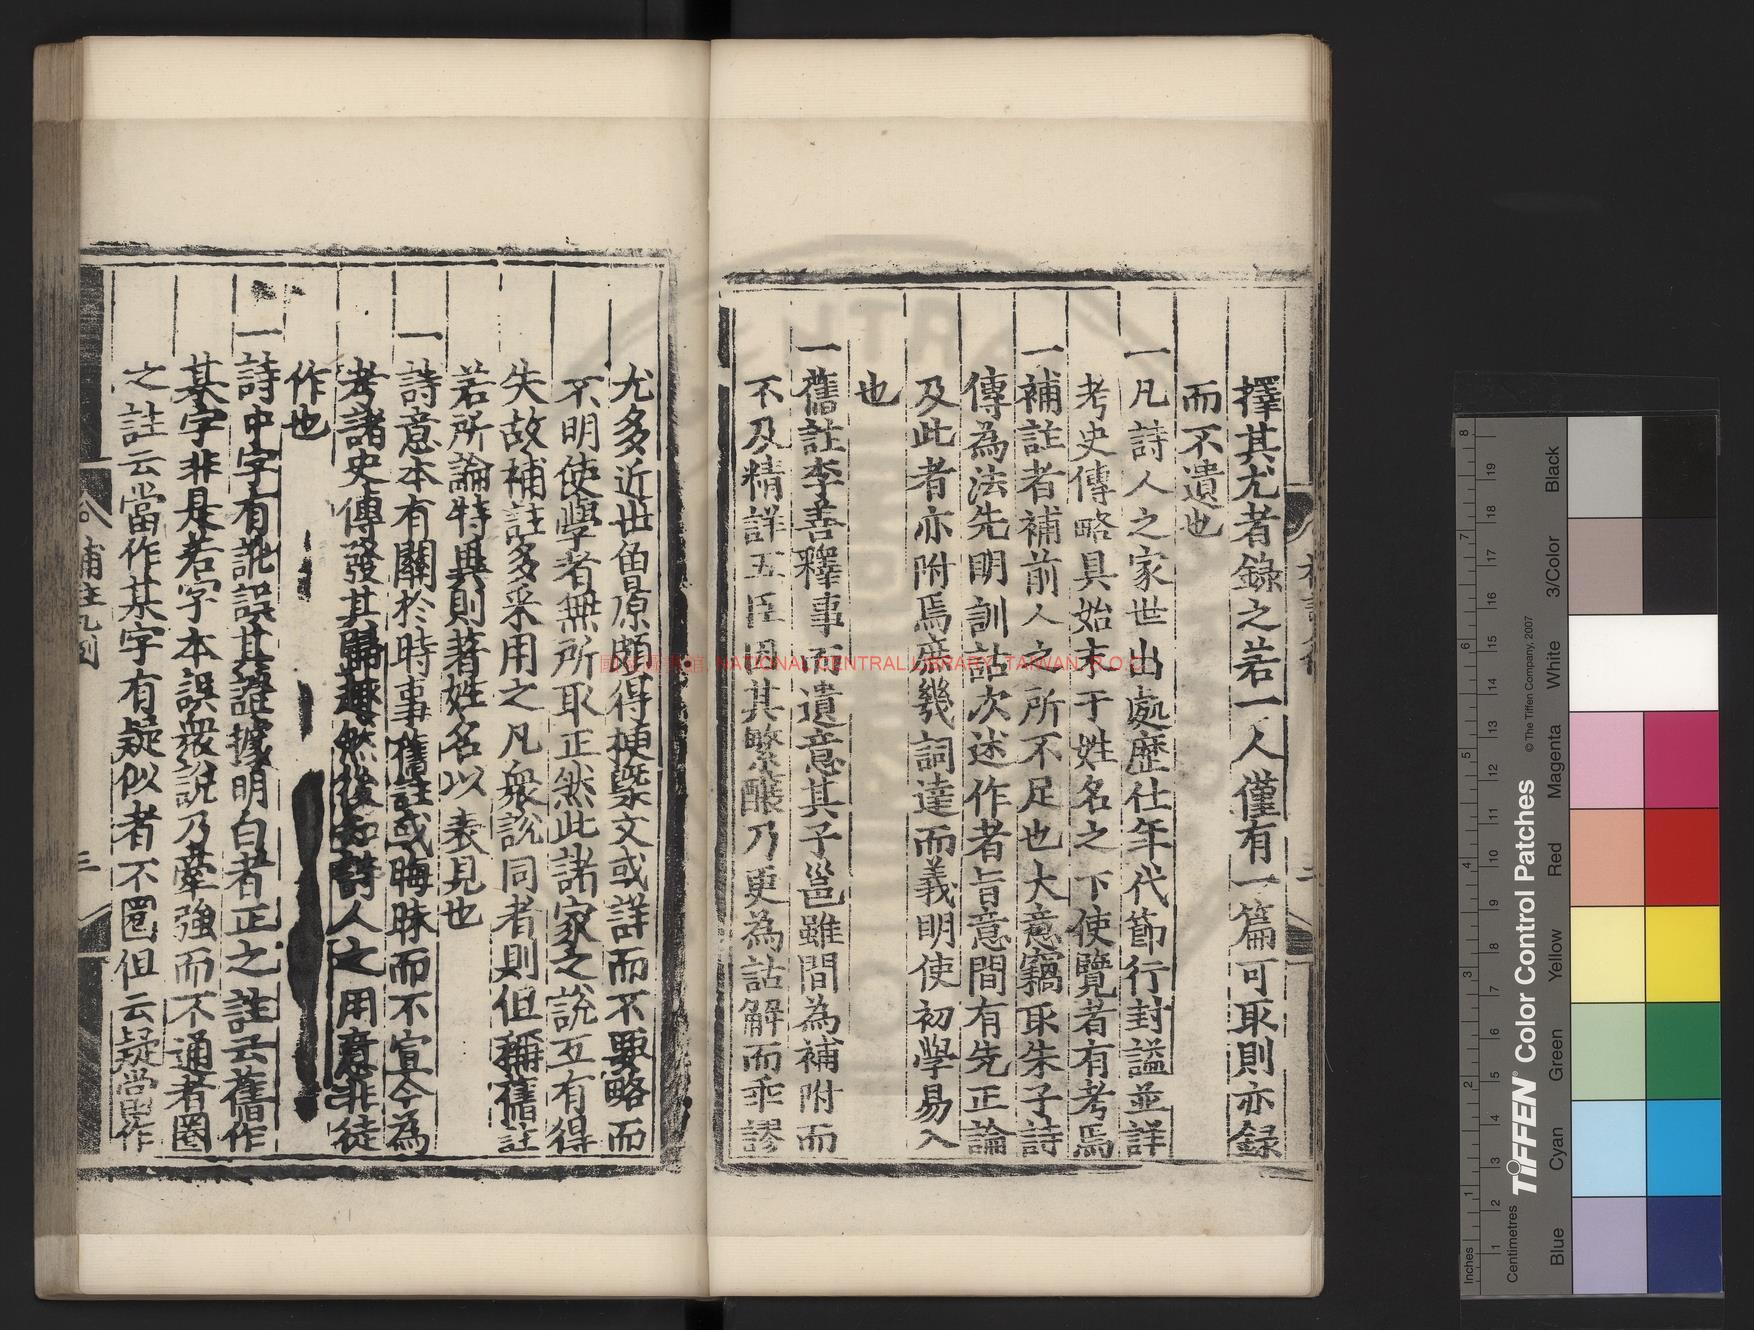 擇其尤者錄之若一人僅有一篇可取則亦錄
而不遺也
一凡詩人之家世出處歷仕年代節行封謚並詳
考史傳略具始末于姓名之下使覽者有考焉
一補註者補前人之所不足也大意竊取朱子詩
傳為法先明訓詁次述作者旨意間有先正論
及此者亦附焉庶幾詞達而義明使初學易入
也
一舊註李善釋事而遺意其子邕雖間為補附而
不及精詳五臣因其繁釀乃更為詁解而乖謬
尤多近世魯原頗得梗槩文或詳而不要略而
不明使學者無所取正然此諸家之說互有得
失故補註多采用之凡衆說同者則但稱舊註
若所論特異則著姓名以表見也
一詩意本有關於時事舊註或晦昧而不宣今為
考諸史傳發其歸趣然後知詩人之用意非徒
作也
一詩中字有訛誤其證據明白者正之註云舊作
某字非是若字本誤衆說乃牽強而不通者圈
之註云當作某字有疑似者不圈但云疑當作
補註凡例
三
二
國家圖書館, NATIONAL CENTRAL LIBRARY, TAIWAN, R.O.C.
TIFFEN Color Control Patches
© The Tiffen Company, 2007
Blue
Cyan
Green
Yellow
Red
Magenta
White
3/Color
Black
Inches
1
2
3
4
5
6
7
8
Centimetres
1
2
3
4
5
6
7
8
9
10
11
12
13
14
15
16
17
18
19